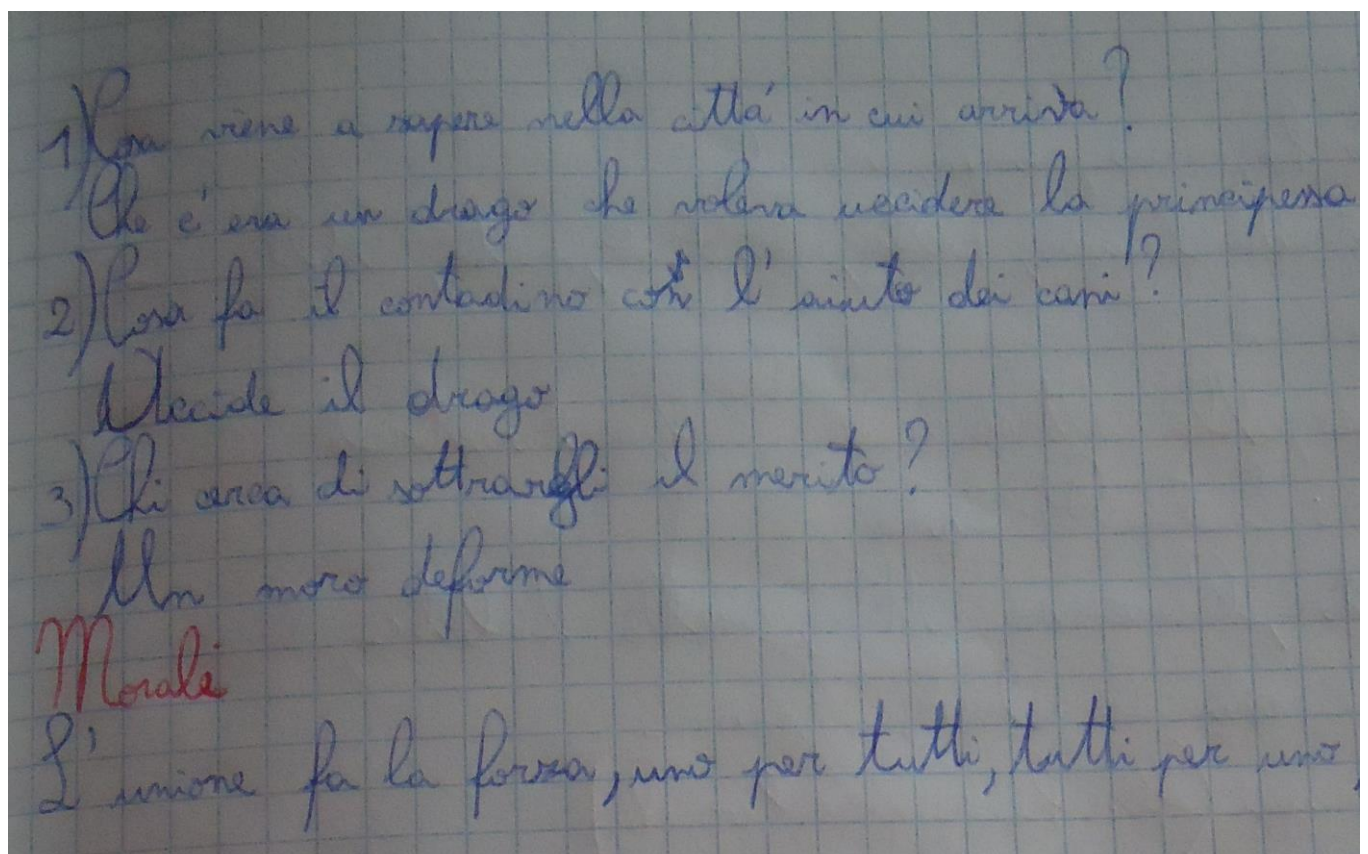 1) Cosa viene a sapere nella cittá in cui arriva?
Che c'era un drago che voleva uccidere la principessa
2) Cosa fa il contadino con l'aiuto dei cani?
Uccide il drago
3) Chi cerca di sottrargli il merito?
Un moro deforme
Morale
L'unione fa la forza, uno per tutti, tutti per uno,